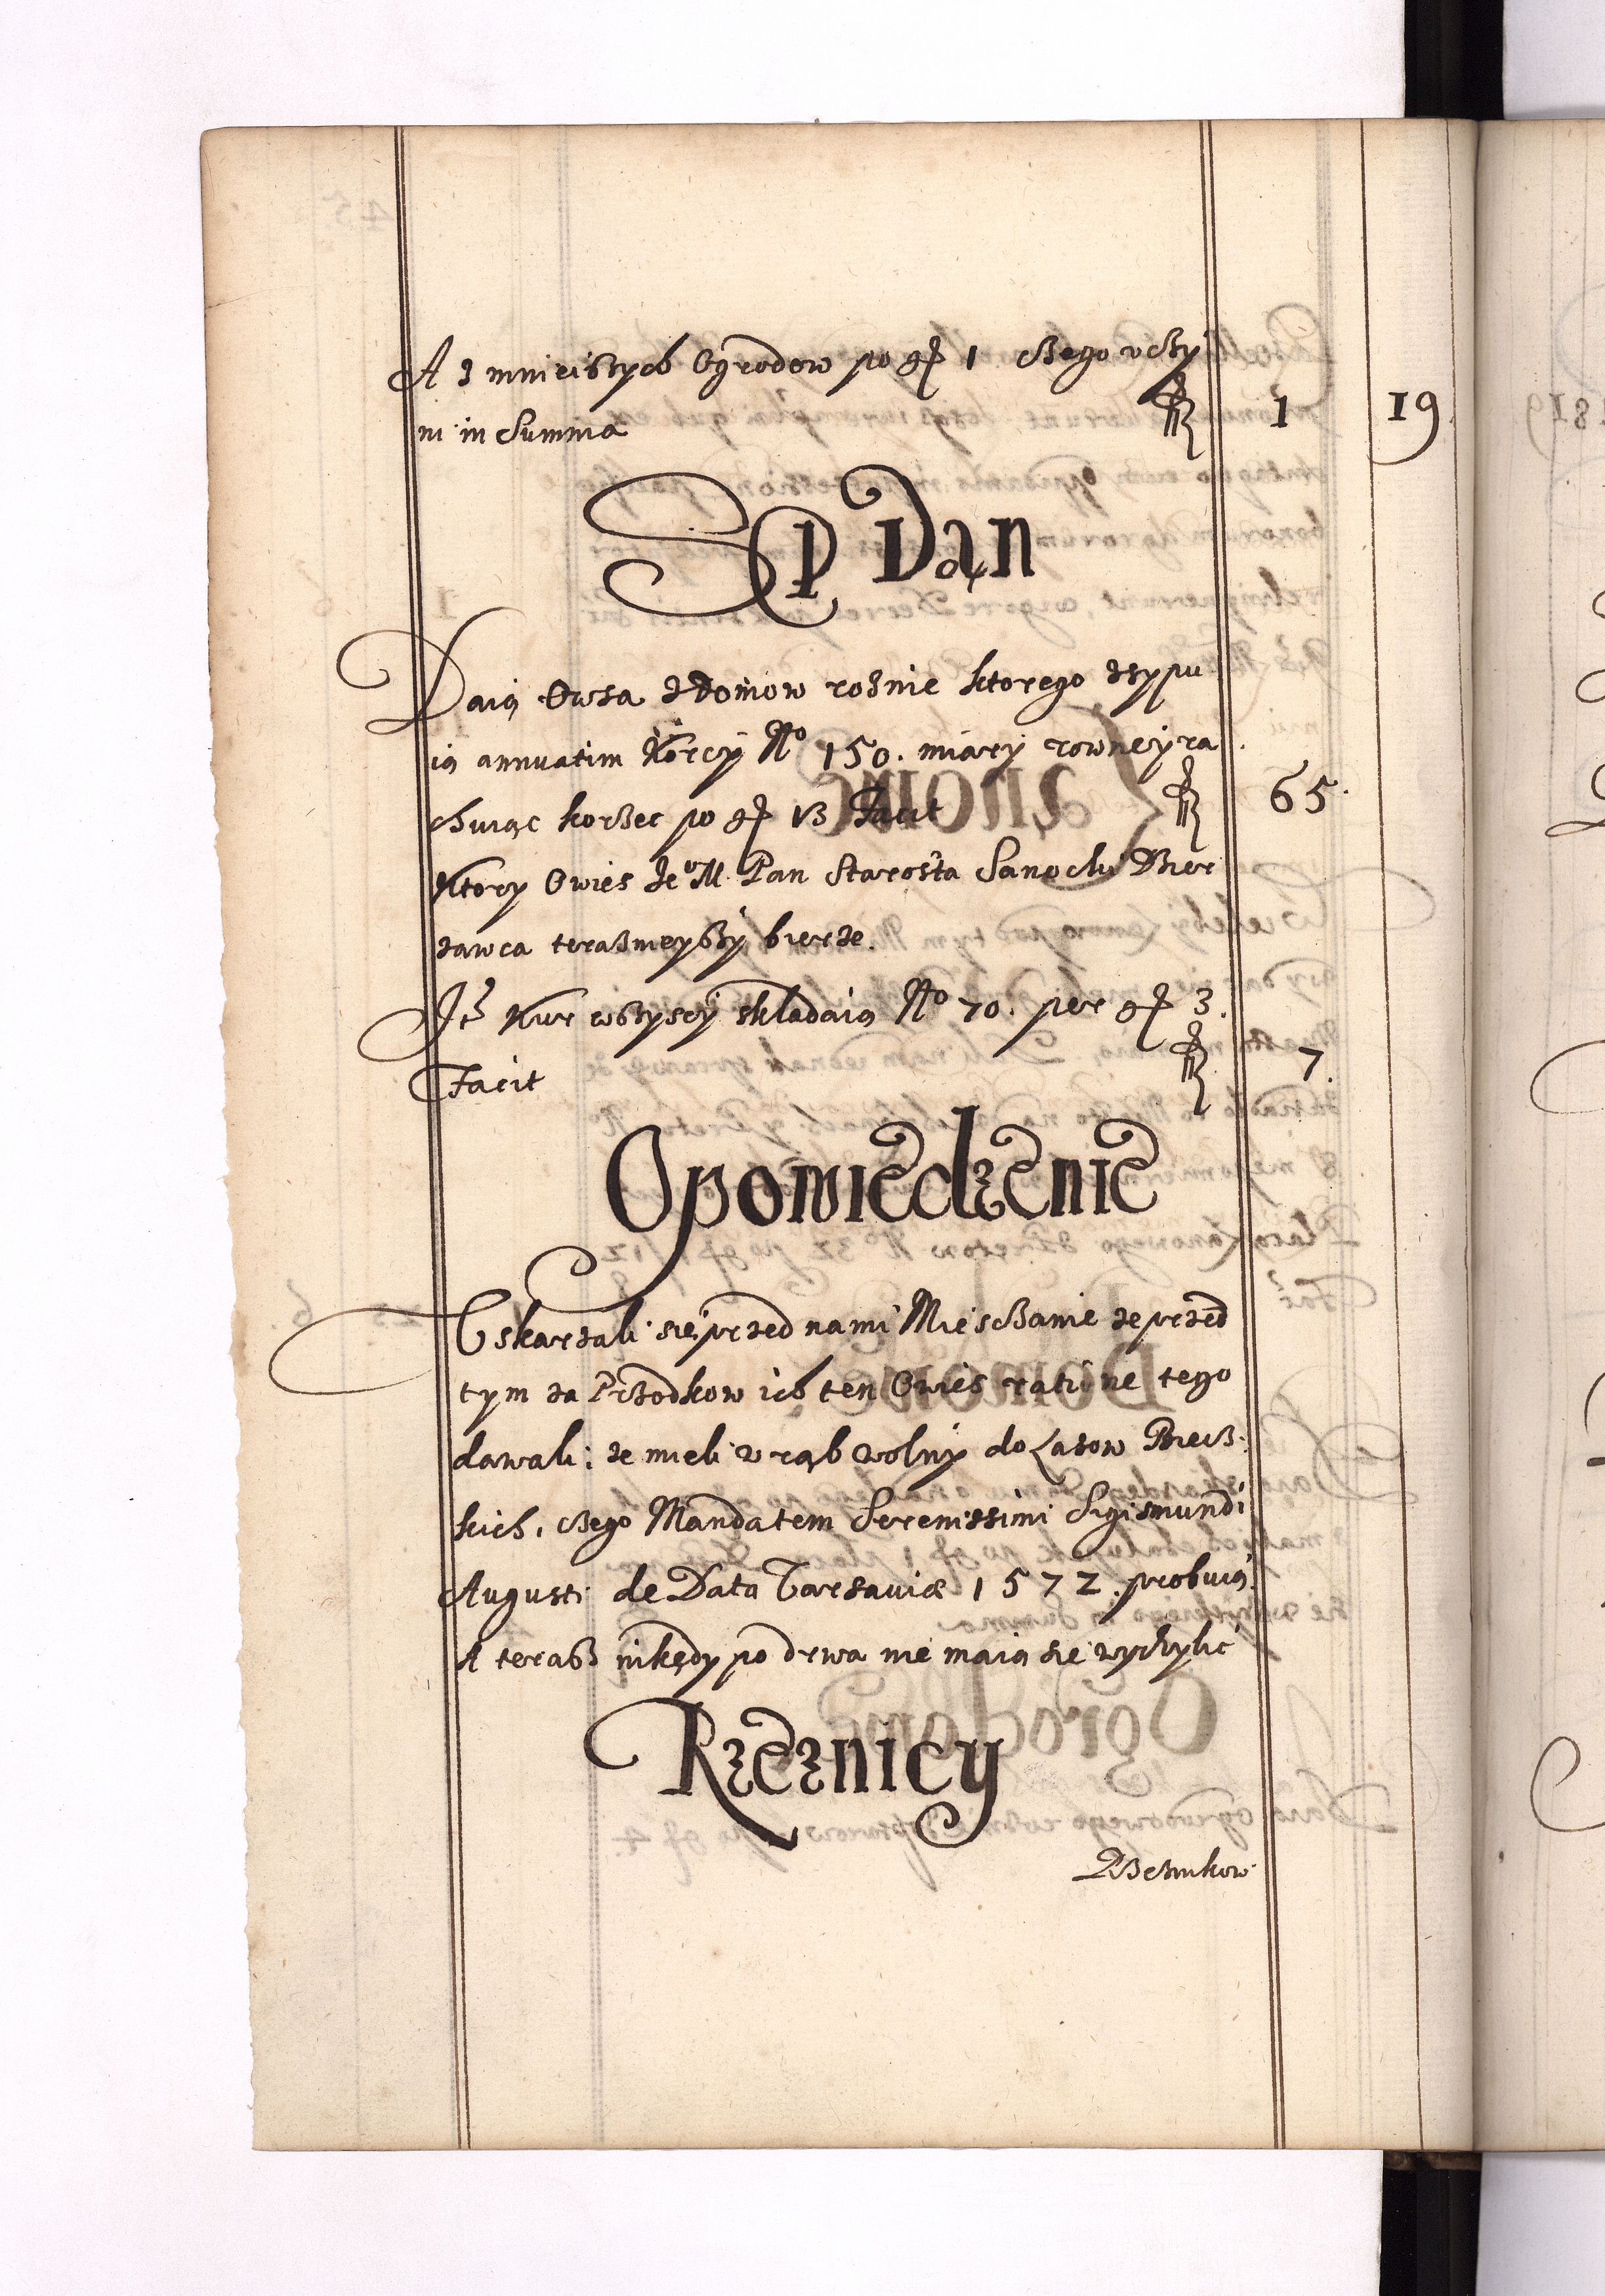 A z mnieiszych Ogrodow po gr 1 czego uczy
ni in Summa fl 1 19
Sp Dan
Daią Owsa z domow roznie ktorego zsypu
ią annuatim Korcy No 150. miary rowney ra
chuiąc korzec po gr 13 Facit fl 65.
Ktory Owies Je͞o M. Pan Starosta Sanocki Dzier
zawca terasznieyszy bierze.
It Kur wszyscy składaią No 70. per gr 3.
Facit fl 7.
Opowiedzenie
Uskarzali się przed nami Miesczanie ze przed
tym za Przodkow ich ten Owies ratione tego
dawali: ze mieli wrąb wolny do Lasow Biecz:
kich, czego Mandatem Serenissimi Sigismundi
Augusti de Data Varsaviæ 1572. probuią.
A terasz nikędy po drwa nie maią się wychylić
Rzeznicy
Rzeznikow